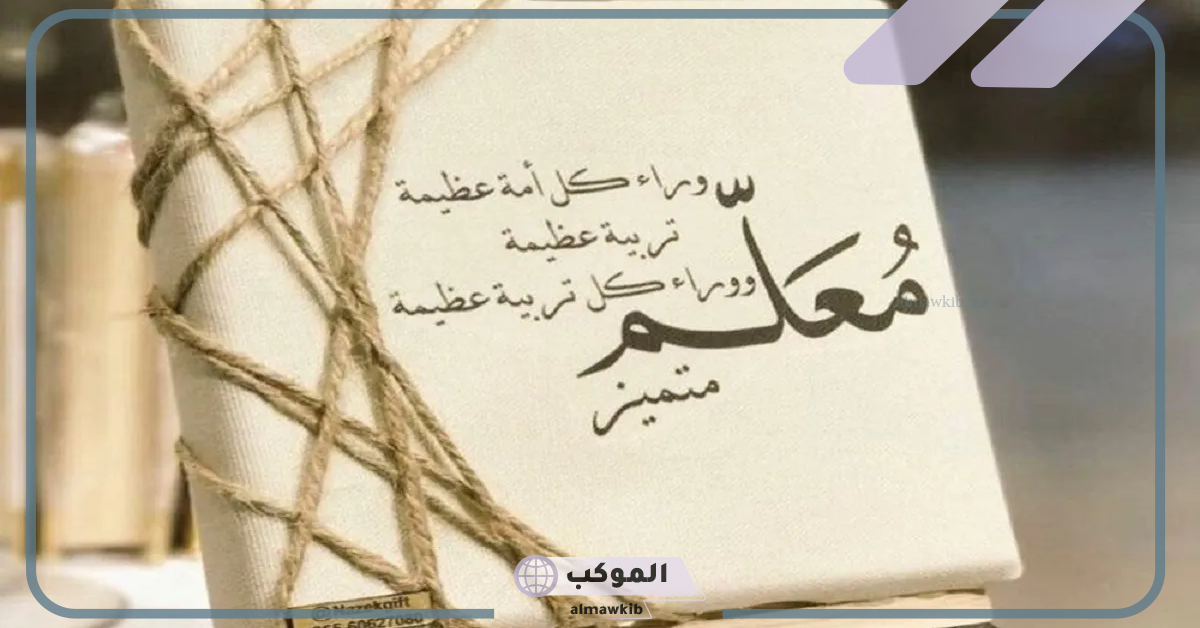 وراء كل أمة عظيمة
تربية عظيمة
ووراء كل تربية عظيمة
مُعَلِّم
متميز
الموكب
almawkib